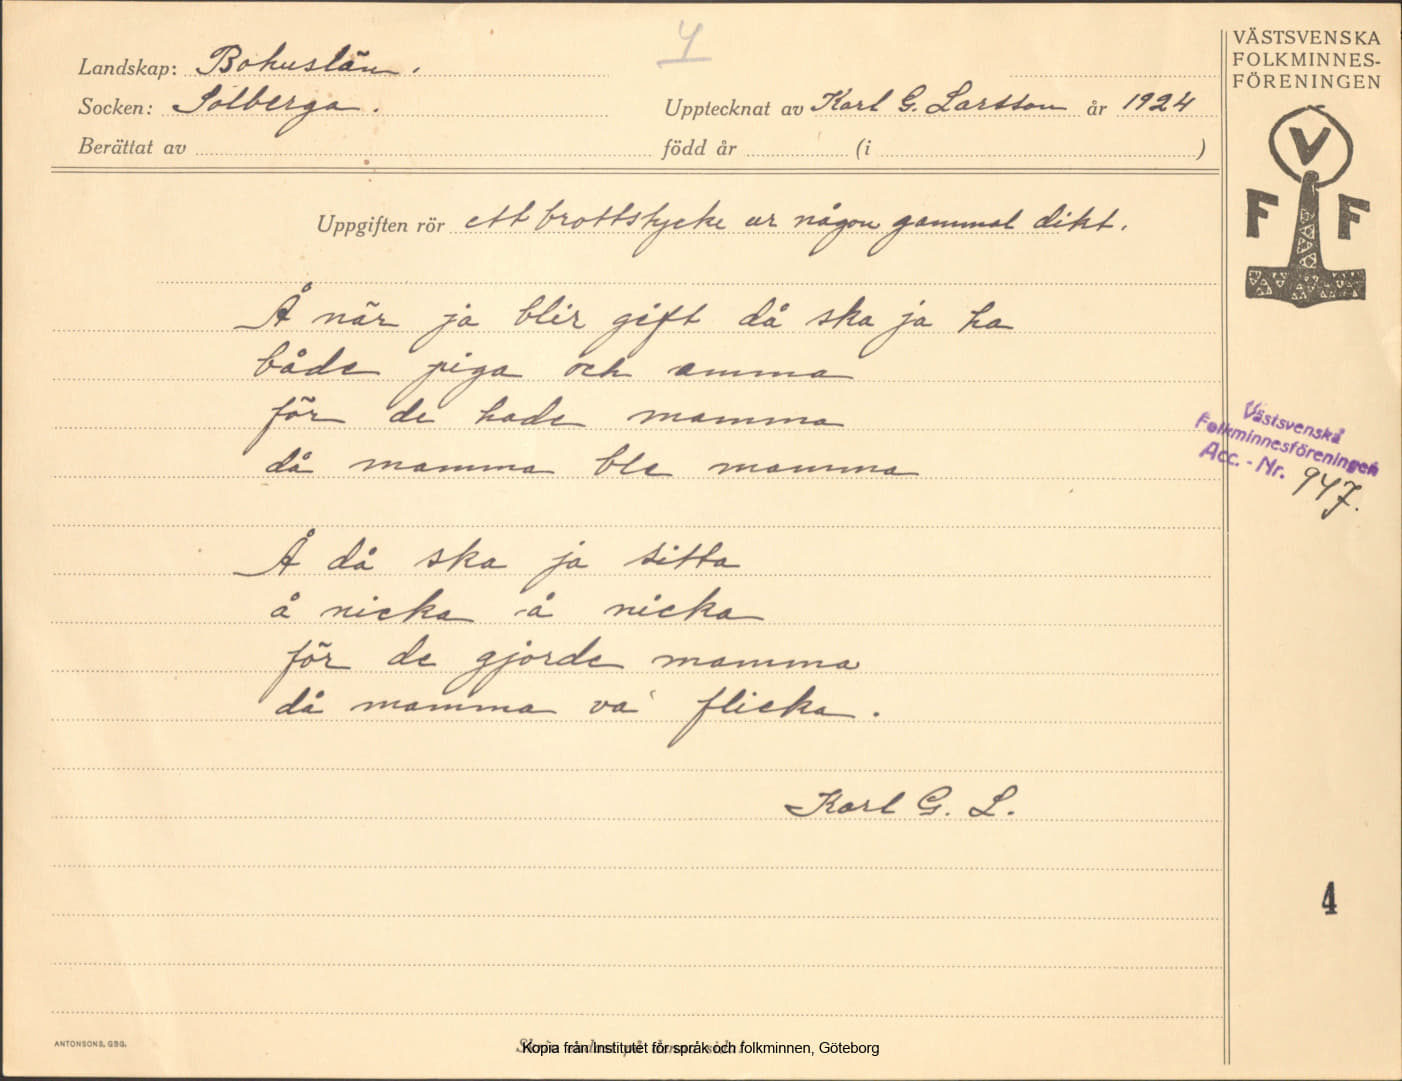 4
Landskap: Bohuslän.
Socken: Solberga.
Upptecknat av Karl G. Larsson år 1924
Berättat av född år (i )
VÄSTSVENSKA
FOLKMINNES-
FÖRENINGEN
V
F F
Uppgiften rör ett brottstycke ur någon gammal dikt.
Å når ja blir gift då ska ja ha
både piga och amma
för de hade mamma
då mamma ble mamma
Å då ska ja sitta
å nicka å nicka
för de gjorde mamma
då mamma va' flicka.
Karl G. L.
Västsvenska
Folkminnesföreningen
Acc. - Nr. 947.
4
ANTONSONS, GBG.
Kopia från Institutet för språk och folkminnen, Göteborg